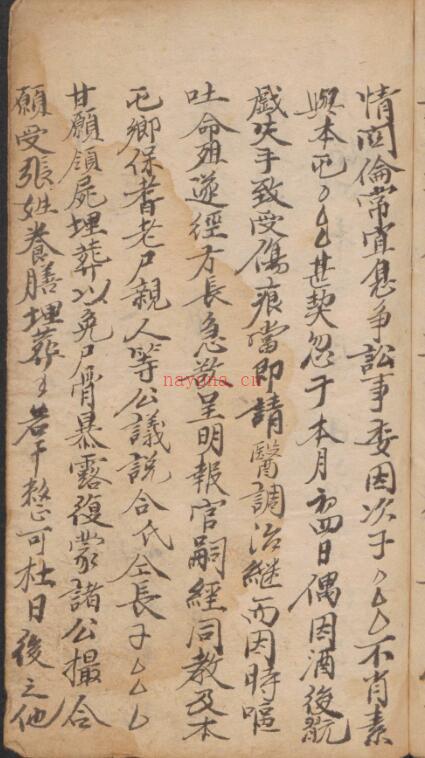 情罔倫常宜息争訟事委因次子〻厶厶不肖素
與本屯〻厶厶甚契忽于本月初四日偶因酒後翫
戲失手致受傷痕當即請醫調治継而因時嘔
吐命殂遂經方長急繳呈明報官嗣經同教及本
屯鄉保耆老尸親人等公議説合氏仝長子厶厶厶
甘願領屍埋葬以免尸骨暴露復蒙諸公撮合
願受張姓養膳埋葬〻若干整可杜日後之他
nayona.cn